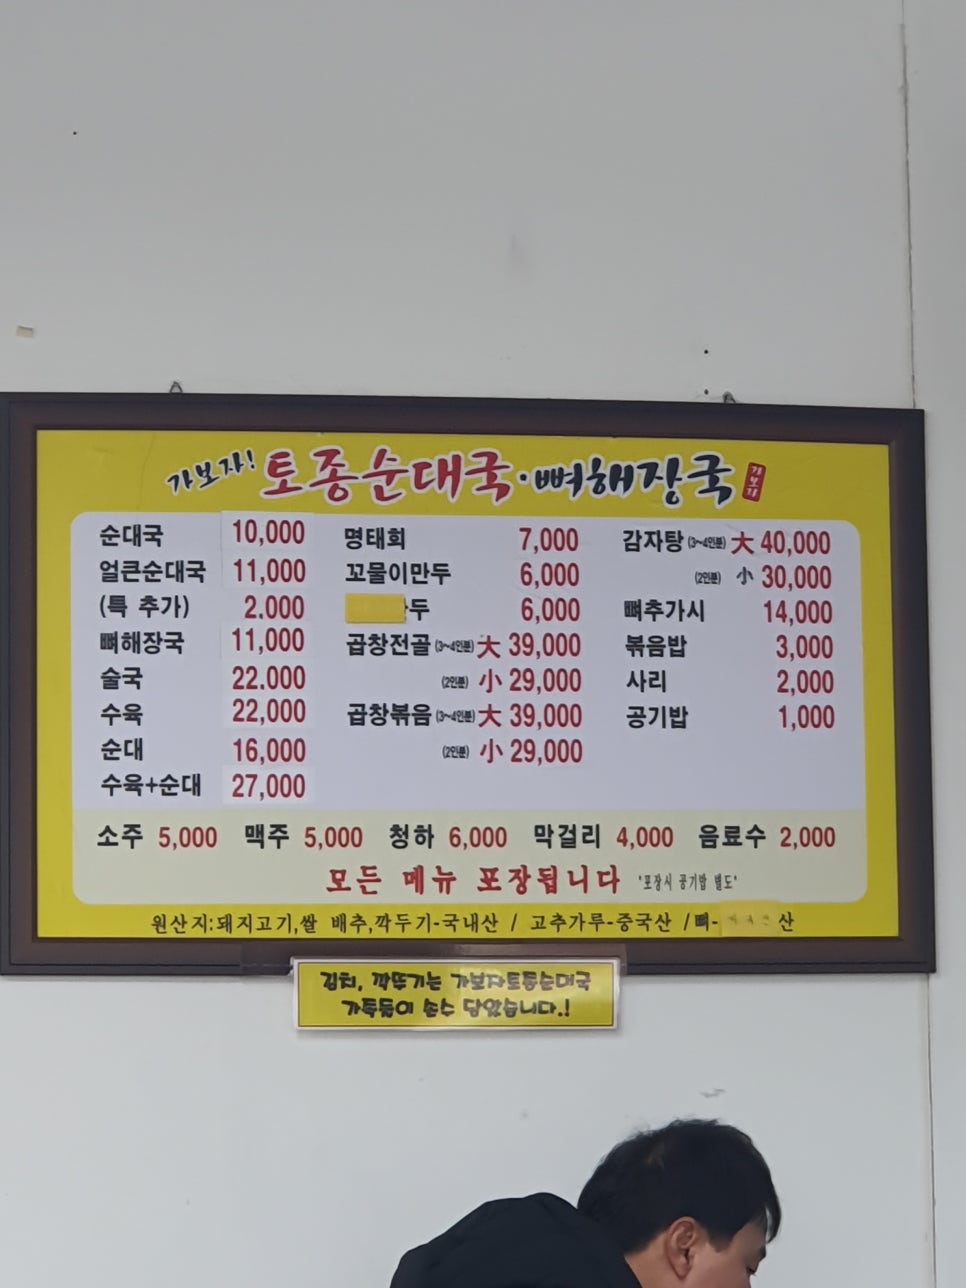 가보자! 토종순대국·뼈해장국 가보자
순대국 10,000
얼큰순대국 11,000
(특 추가) 2,000
뼈해장국 11,000
술국 22,000
수육 22,000
순대 16,000
수육+순대 27,000
명태회 7,000
꼬물이만두 6,000
두 6,000
곱창전골 (3~4인분) 大 39,000
(2인분) 小 29,000
곱창볶음 (3~4인분) 大 39,000
(2인분) 小 29,000
감자탕 (3~4인분) 大 40,000
(2인분) 小 30,000
뼈추가시 14,000
볶음밥 3,000
사리 2,000
공기밥 1,000
소주 5,000 맥주 5,000 청하 6,000 막걸리 4,000 음료수 2,000
모든 메뉴 포장됩니다 "포장시 공기밥 별도"
원산지:돼지고기,쌀 배추,깍두기-국내산 / 고추가루-중국산 /뼈- 산
김치, 깍뚜기는 가보자토종순대국
가족들이 손수 담았습니다.!